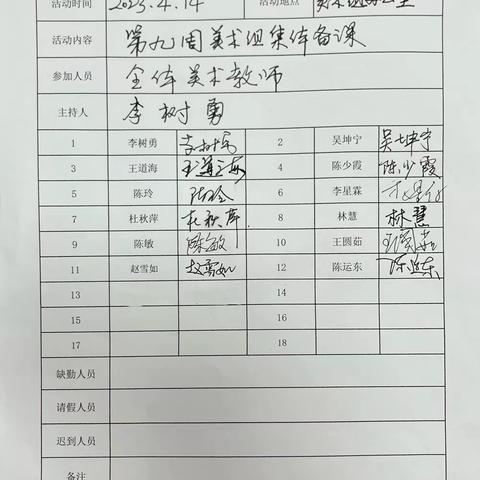 活动时间 2023.4.14 活动地点
活动内容 第九周美术组集体备课
参加人员 全体美术教师
主持人 李树勇
1 李树勇 李树勇 2 吴坤宁 吴坤宁
3 王道海 王道海 4 陈少霞 陈少霞
5 陈玲 陈玲 6 李星霖
7 杜秋萍 杜秋萍 8 林慧 林慧
9 陈敏 陈敏 10 王圆茹 王圆茹
11 赵雪如 赵雪如 12 陈运东 陈运东
13 14
15 16
17 18
缺勤人员
请假人员
迟到人员
备注